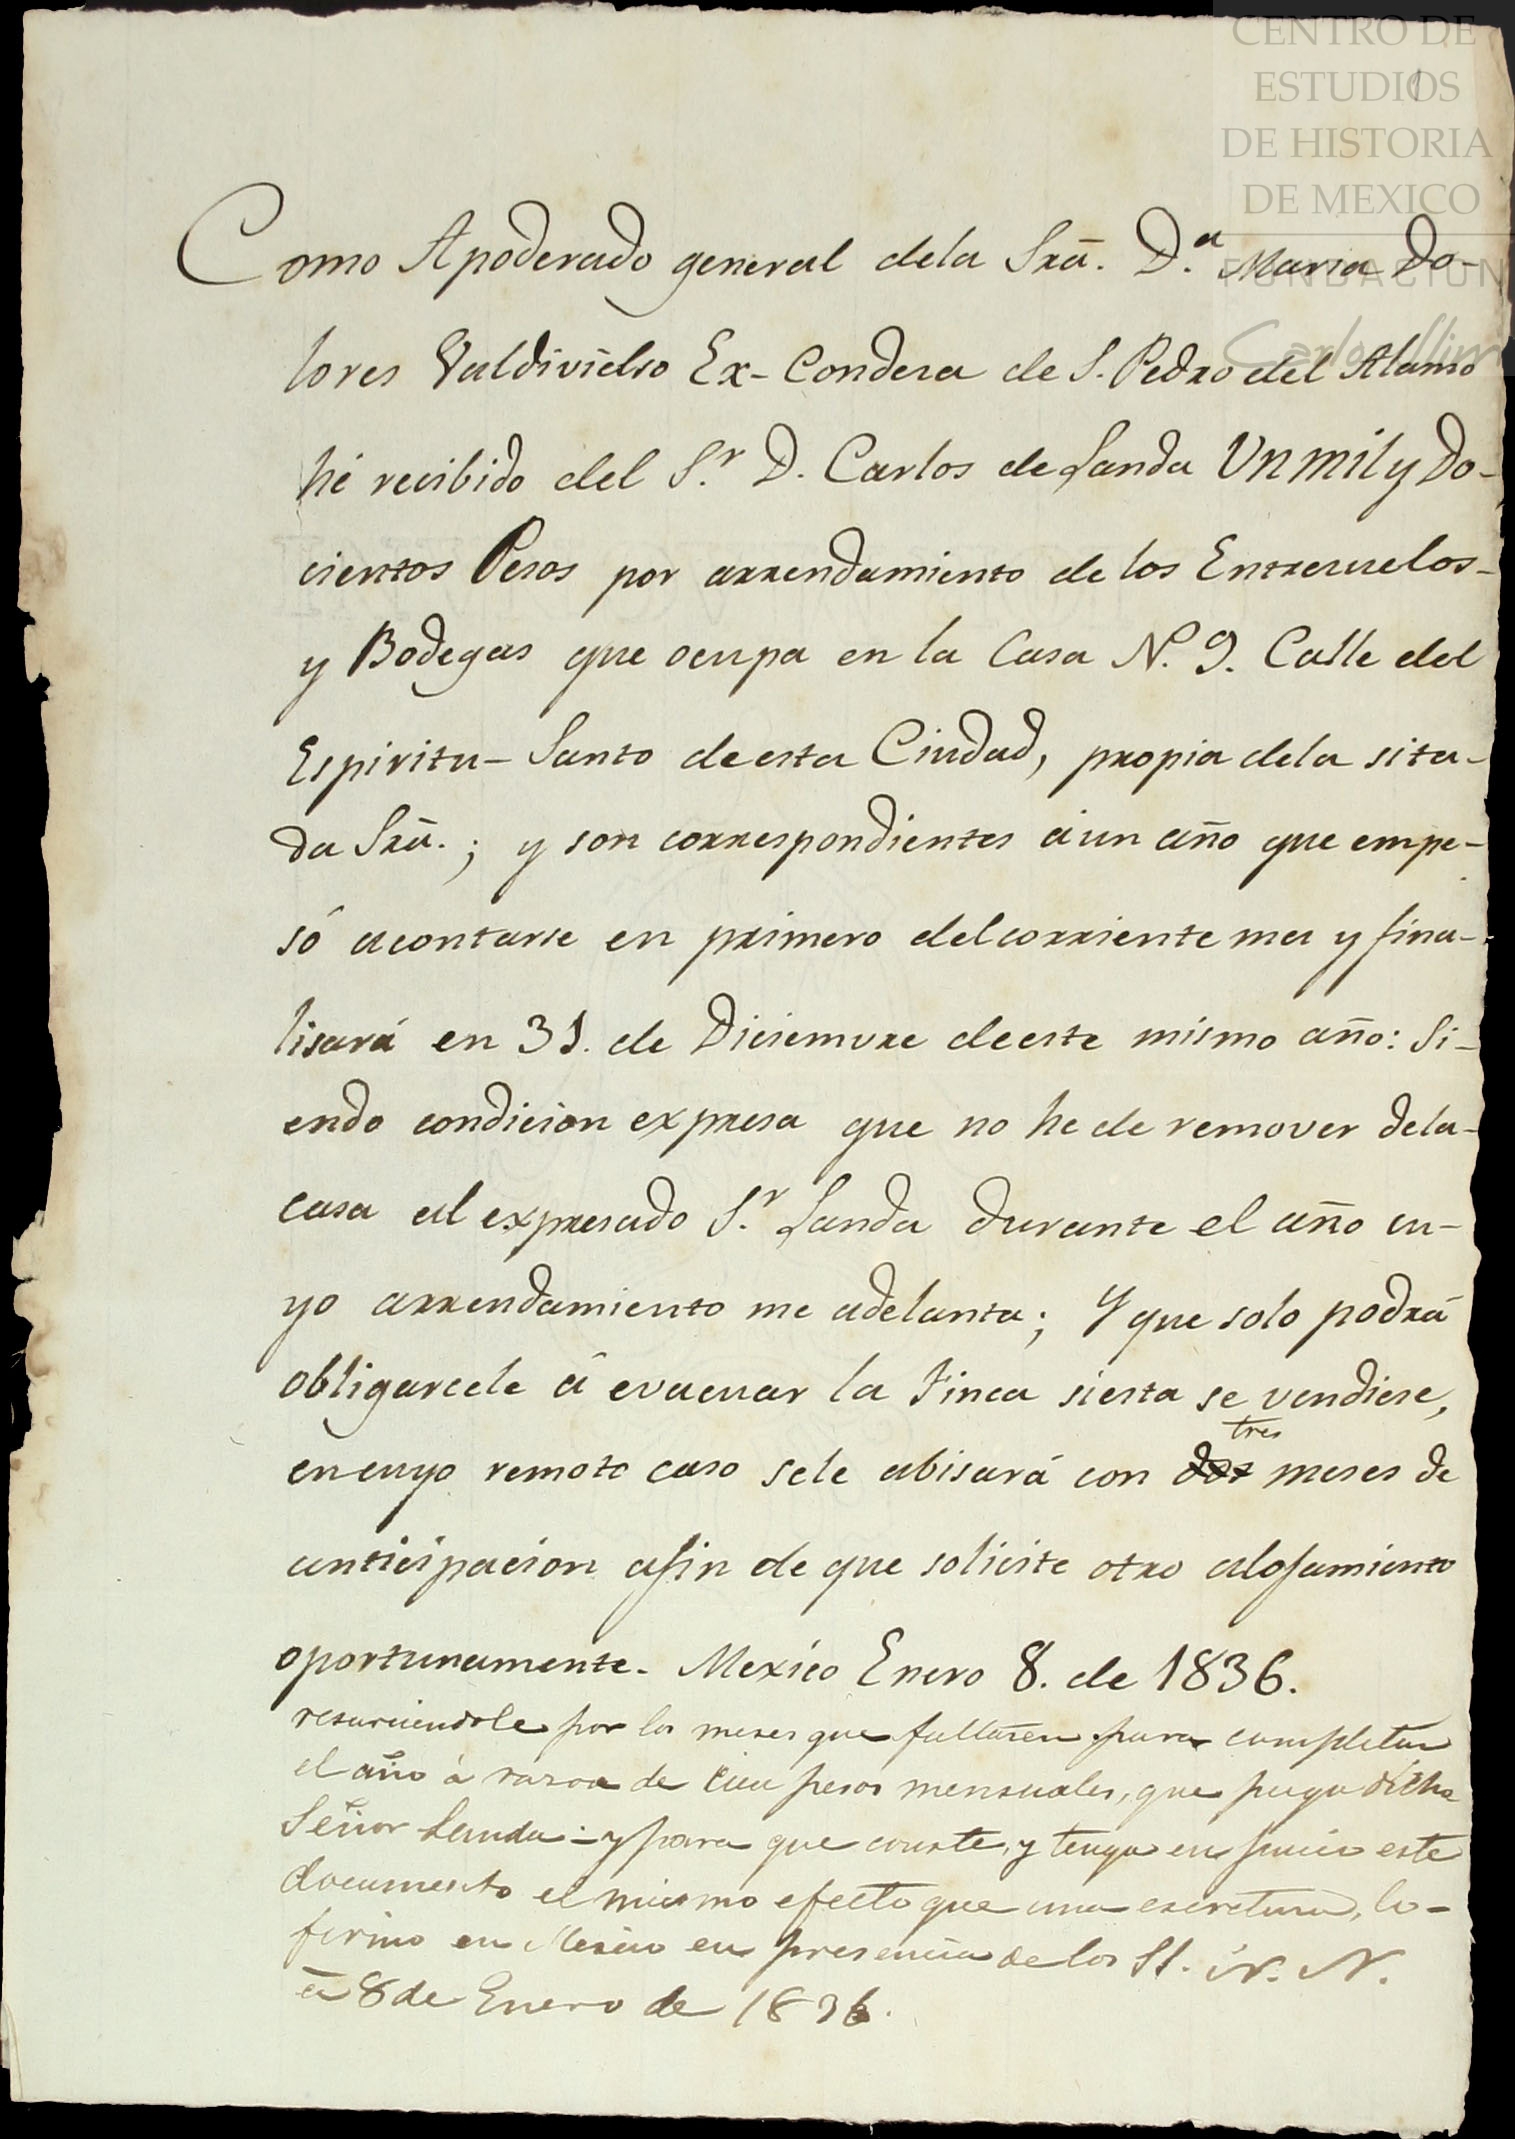 CENTRO DE
ESTUDIOS
DE HISTORIA
DE MEXICO
FUNDACION
Carlos Slim
Como Apoderado general dela Srā. D.ª Maria Do-
lores Valdivielso Ex-Condesa de S. Pedro del Alamo
hé recibido del S.r D. Carlos de Landa Un mil y Do-
cientos Pesos por arrendamiento de los Entresuelos-
y Bodegas que ocupa en la Casa N. 9. Calle del
Espiritu-Santo de esta Ciudad, propia dela sita-
da Srā.; y son correspondientes á un año que empe-
só acontarse en primero del corriente mes y fina-
lisará en 31. de Diciemvre de este mismo año: Si-
endo condicion expresa que no he de remover dela-
casa al expresado S.r Landa durante el año cu-
yo arrendamiento me adelanta; Y que solo podrá
obligarcele á evacuar la Finca siesta se vendiese,
tres
en cuyo remoto caso sele abisará con dos meses de
anticipacion afin de que solicite otro alojamiento
oportunamente. Mexico Enero 8. de 1836.
resarciendole por los meses que faltaren para completar
el año á razon de cien pesos mensuales, que paga dicho
Señor Landa: y para que conste, y tenga en juicio este
documento el mismo efecto que una escretura, lo-
firmo en Mexico en presencia de los SS. N. N.
á 8 de Enero de 1836.